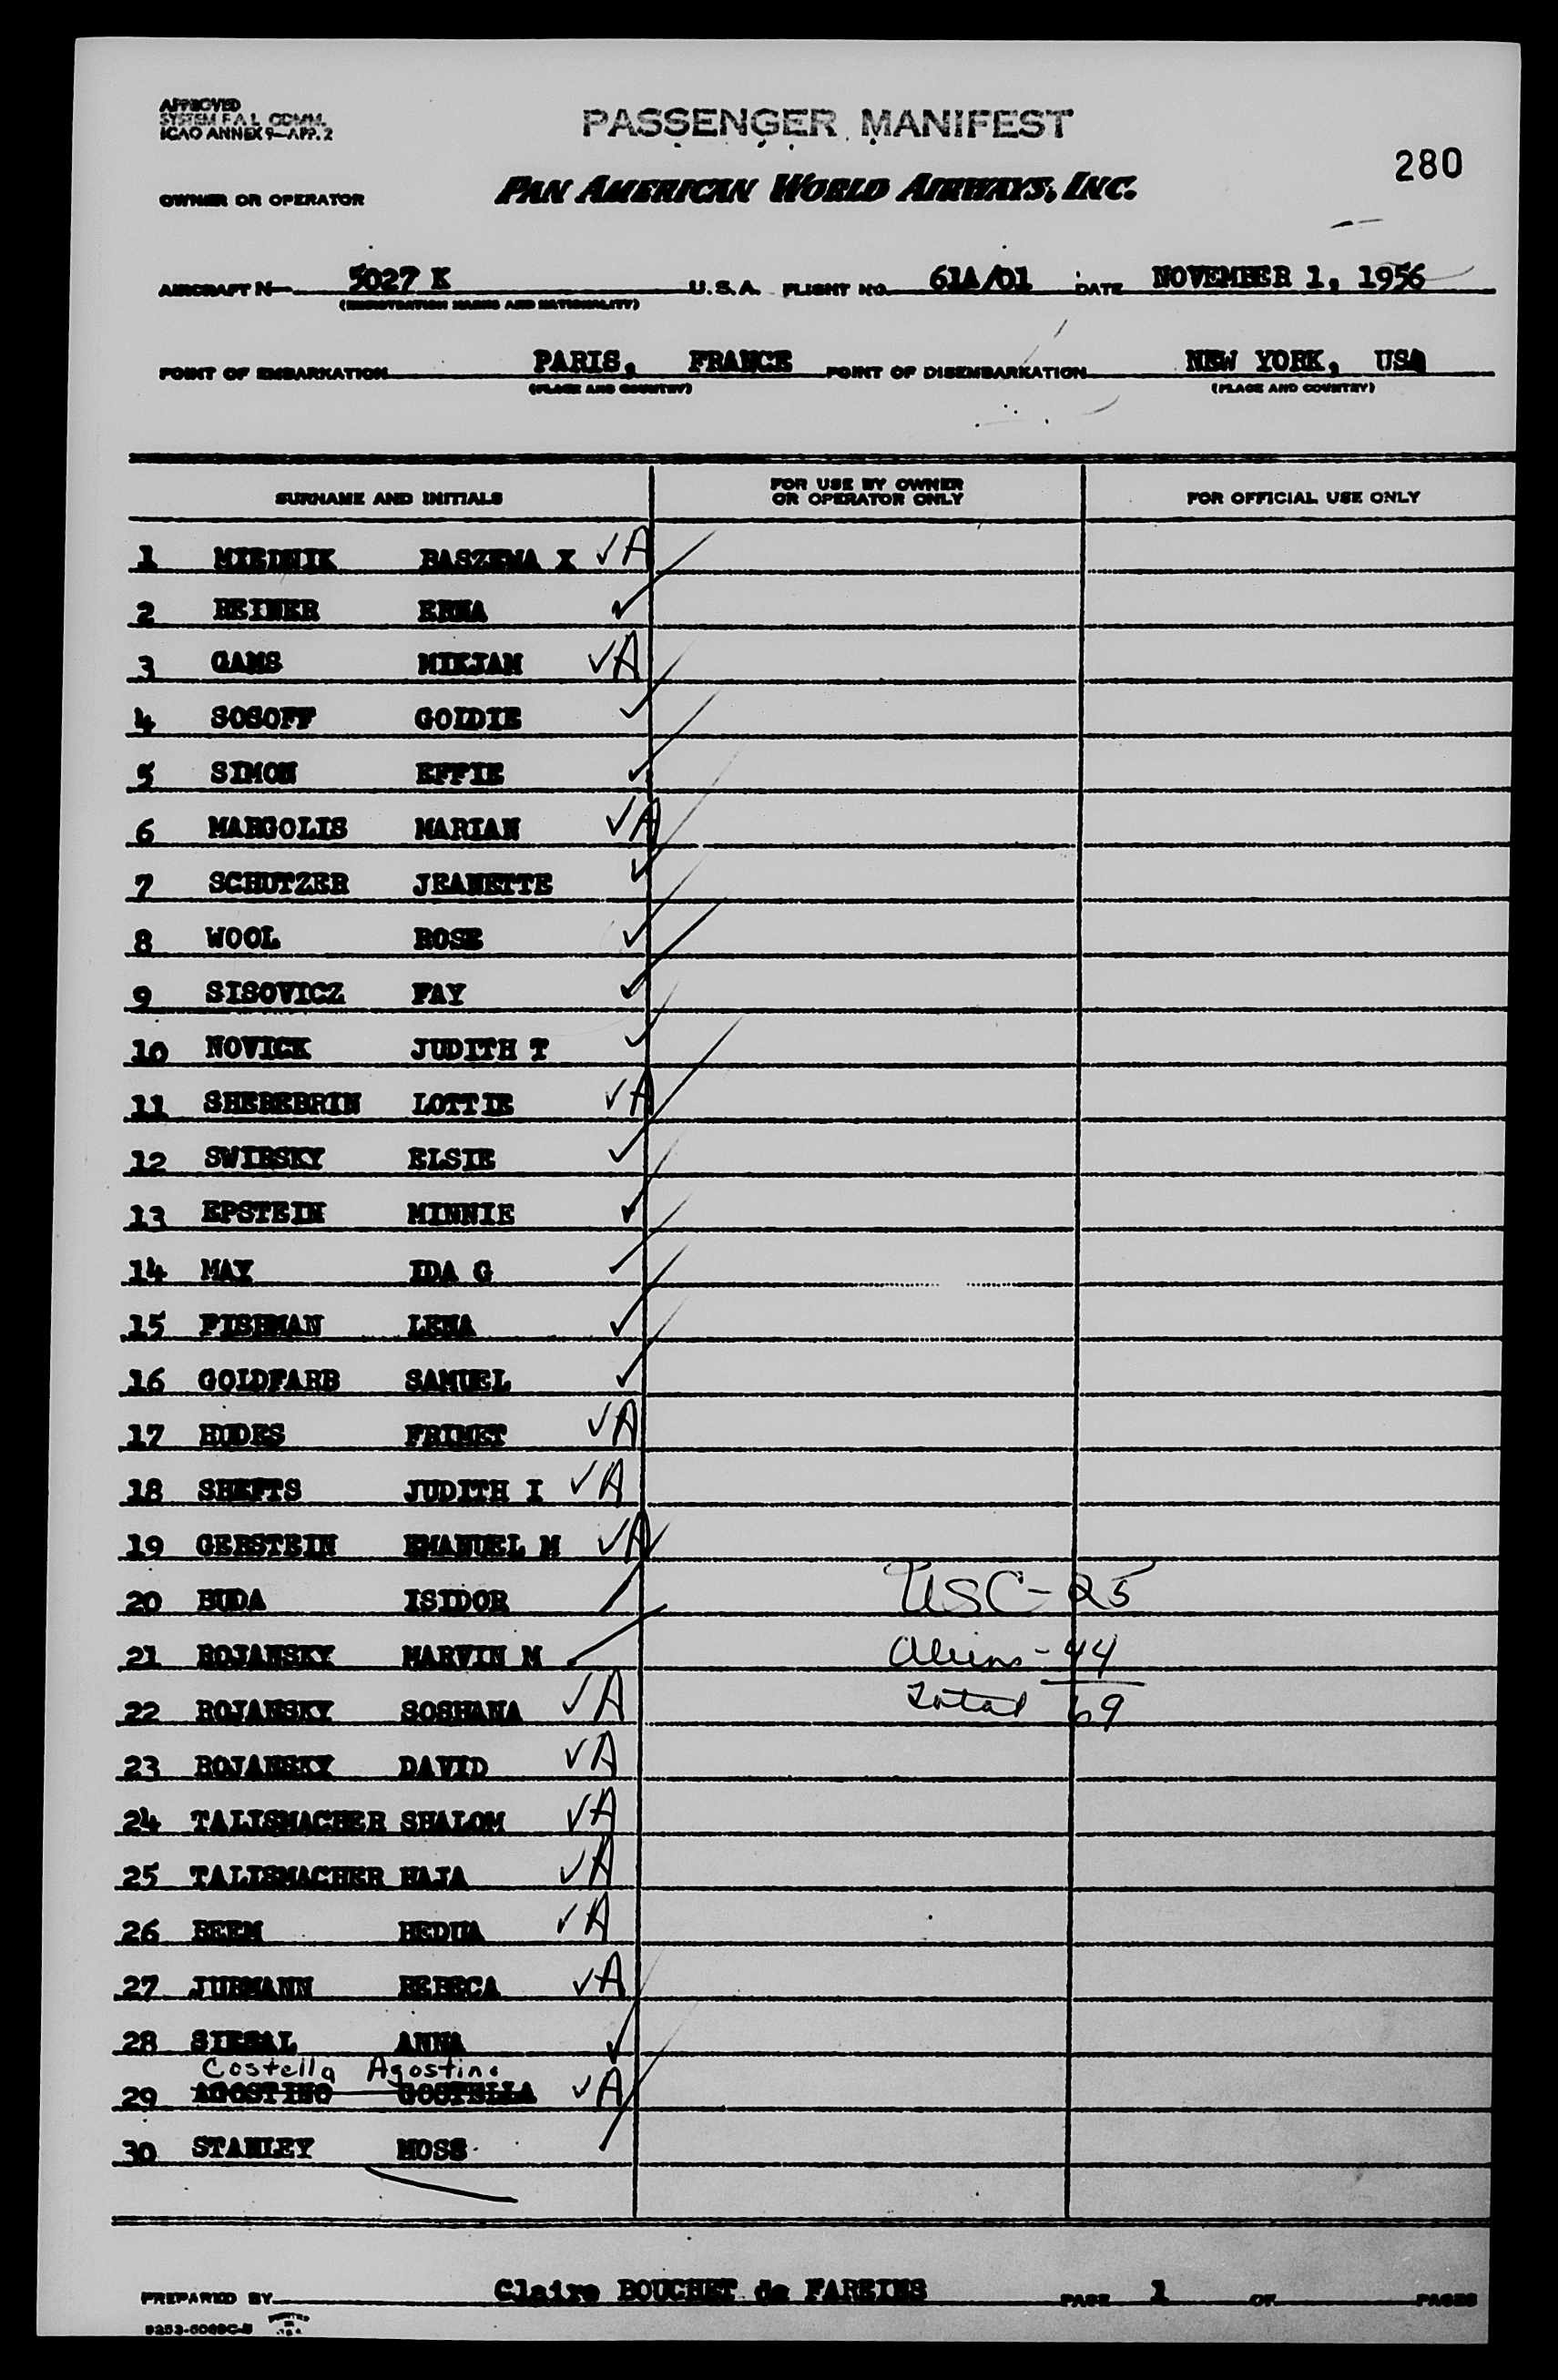 APPROVED
SYSTEM F.A.L. COMM.
ICAO ANNEX 9—APP. 2
PASSENGER MANIFEST
280
OWNER OR OPERATOR PAN AMERICAN WORLD AIRWAYS, INC.
AIRCRAFT N— 5027 K U.S.A. FLIGHT NO. 61A/01 DATE NOVEMBER 1, 1956
(REGISTRATION MARKS AND NATIONALITY)
POINT OF EMBARKATION PARIS, FRANCE POINT OF DISEMBARKATION NEW YORK, USA
(PLACE AND COUNTRY) (PLACE AND COUNTRY)
SURNAME AND INITIALS FOR USE BY OWNER OR OPERATOR ONLY FOR OFFICIAL USE ONLY
1 MIEDNIK BASZEWA X √A
2 REINER ERNA √
3 GAMS MIRJAM √A
4 SOSOFF GOLDIE √
5 SIMON EFFIE √
6 MARGOLIS MARIAN √A
7 SCHUTZER JEANETTE √
8 WOOL ROSE √
9 SISOVICZ FAY √
10 NOVICK JUDITH T √
11 SHEREBRIN LOTTIE √A
12 SWIRSKY ELSIE √
13 EPSTEIN MINNIE √
14 MAY IDA G √
15 FISHMAN LENA √
16 GOLDFARB SAMUEL √
17 HUDES FRIMET √A
18 SHEFTS JUDITH I √A
19 GERSTEIN EMANUEL M √A
20 BUDA ISIDOR USC - 25
21 ROJANSKY MARVIN M Aliens - 44
22 ROJANSKY SOSHANA √A Total 69
23 ROJANSKY DAVID √A
24 TALISMACHER SHALOM √A
25 TALISMACHER HAJA √A
26 REEM √A
27 JURMANN REBECA √A
28 ANNA √
Costella Agostino
29 AGOSTINO COSTELLA √A
30 STANLEY MOSS
PREPARED BY Claire BOUCHET de FAREINS PAGE 1 OF PAGES